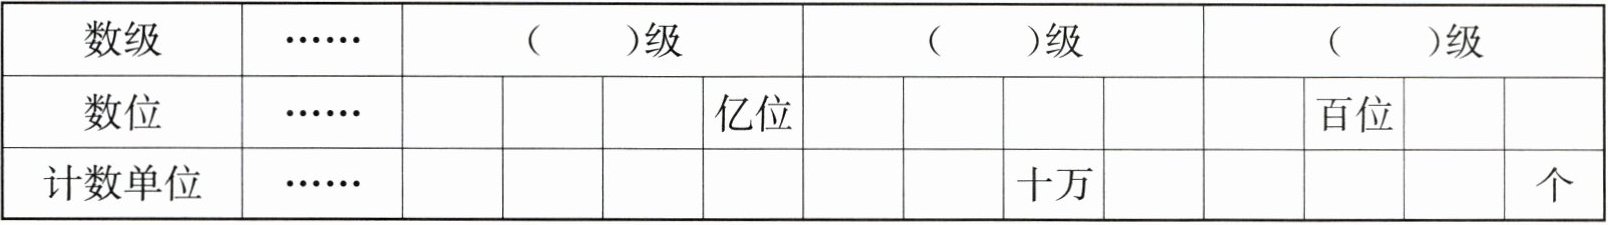 数级 …… （ ）级 （ ）级 （ ）级
数位 …… 亿位 百位
计数单位 …… 十万 个